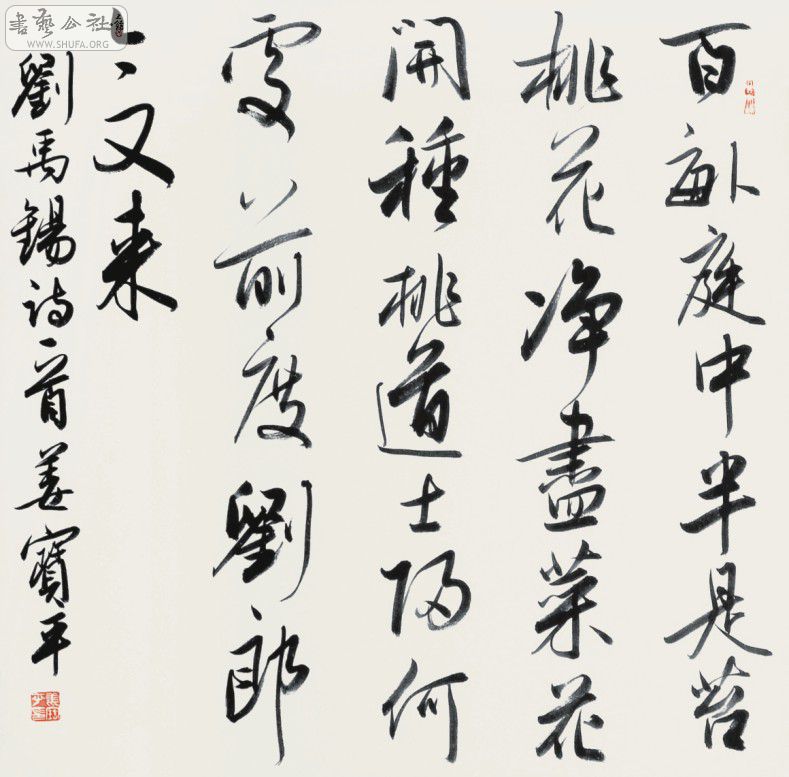 百畝庭中半是苔
桃花净盡菜花
開種桃道士歸何
處前度劉郎
又来
劉禹錫詩一首姜寶平
書藝公社
WWW.SHUFA.ORG